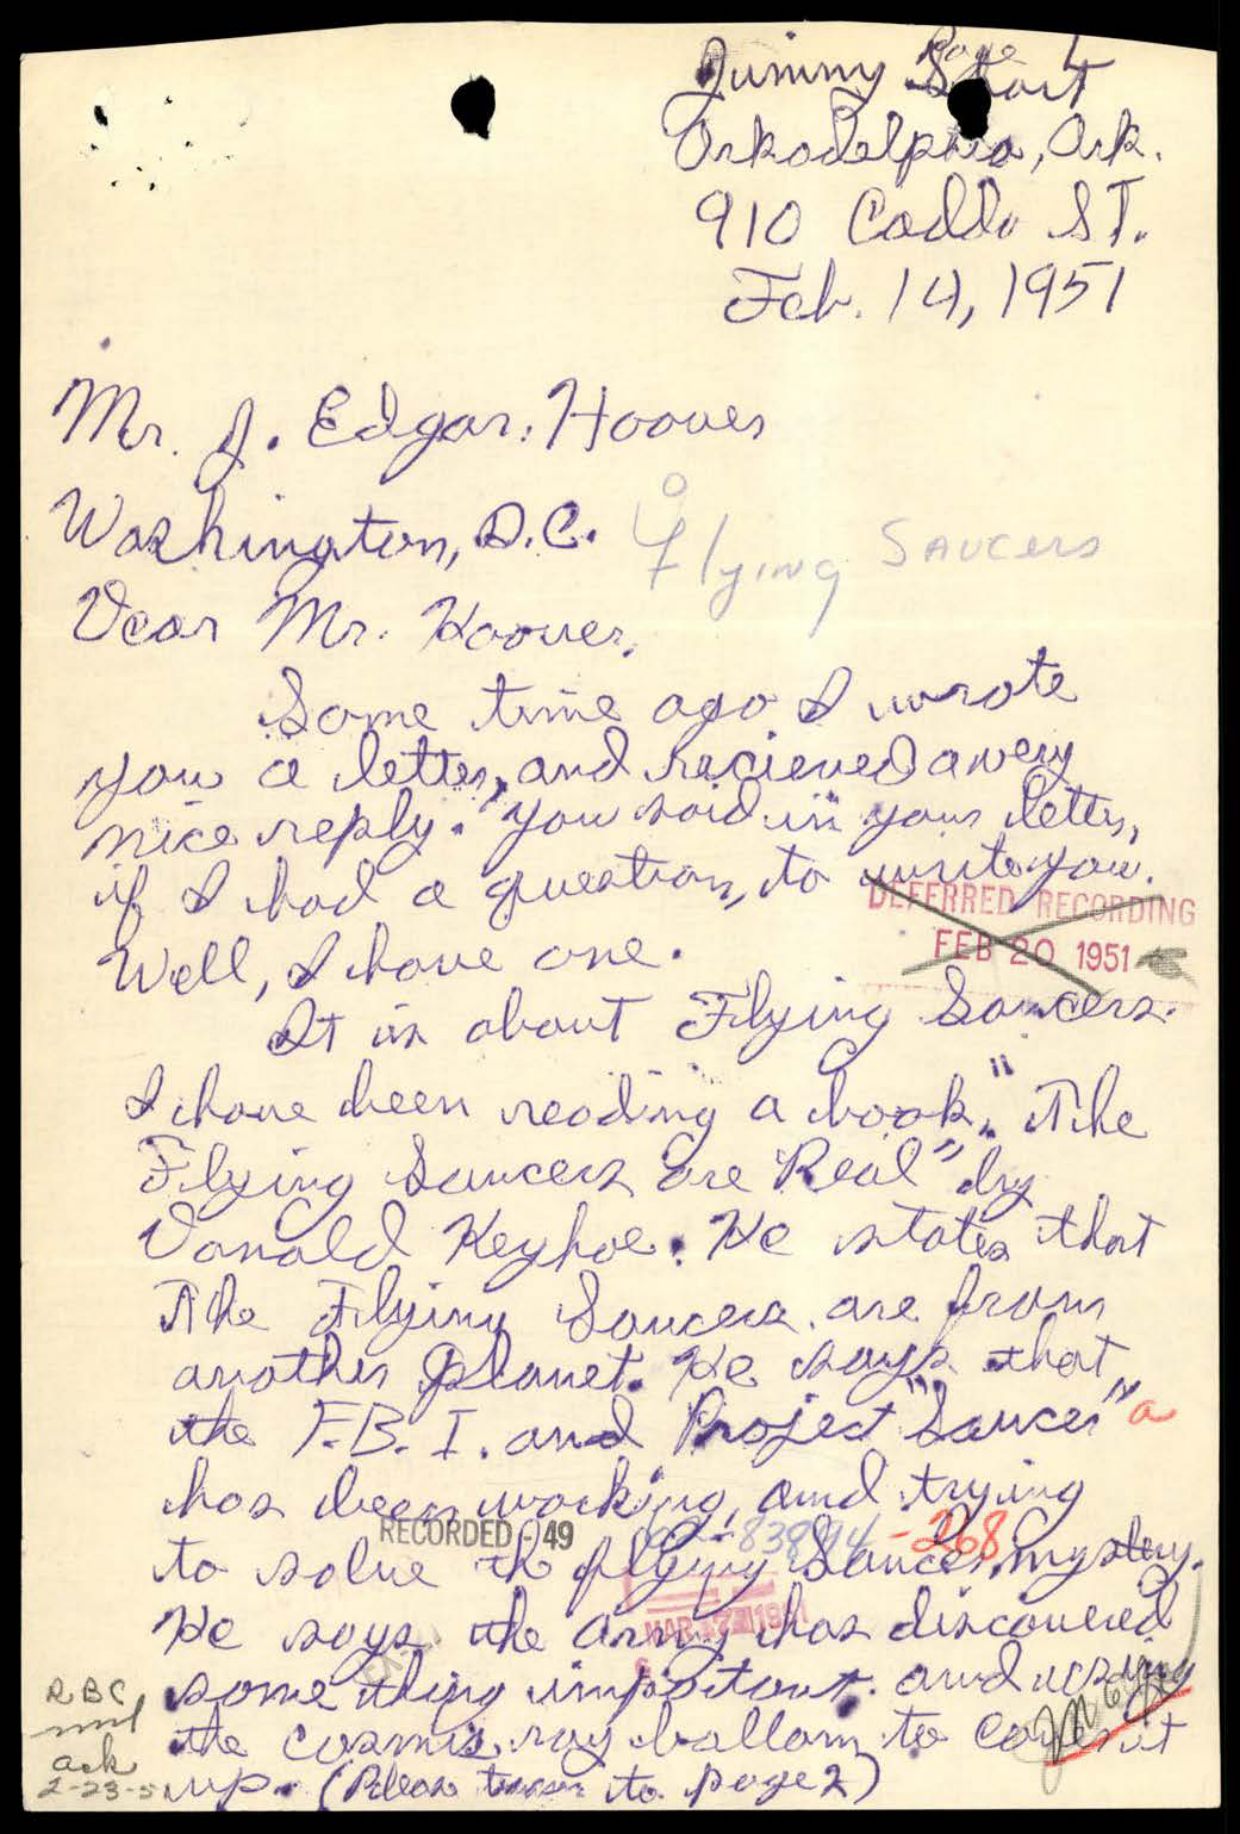 Page 1
Jimmy Short
Arkadelphia, Ark.
910 Caddo ST.
Feb. 14, 1951
Mr. J. Edgar Hoover
Washington, D.C.
Flying Saucers
Dear Mr. Hoover,
Some time ago I wrote
you a letter, and recieved a very
nice reply. You said in your letter,
if I had a question, to write you.
DEFERRED RECORDING
Well, I have one.
FEB 20 1951
It is about Flying Saucers.
I have been reading a book, "The
Flying Saucers are Real" by
Donald Keyhoe. He states that
The Flying Saucers are from
another planet. He says that
the F.B.I. and Project "Saucer"
has been working, and trying
RECORDED - 49 62-83894-268
to solve th flying Saucer mystery.
MAR
He says the army has discovered
some thing important and using
RBC
the cosmis ray ballom to cover it
ack
2-23-5
up. (Please turn to page 2)